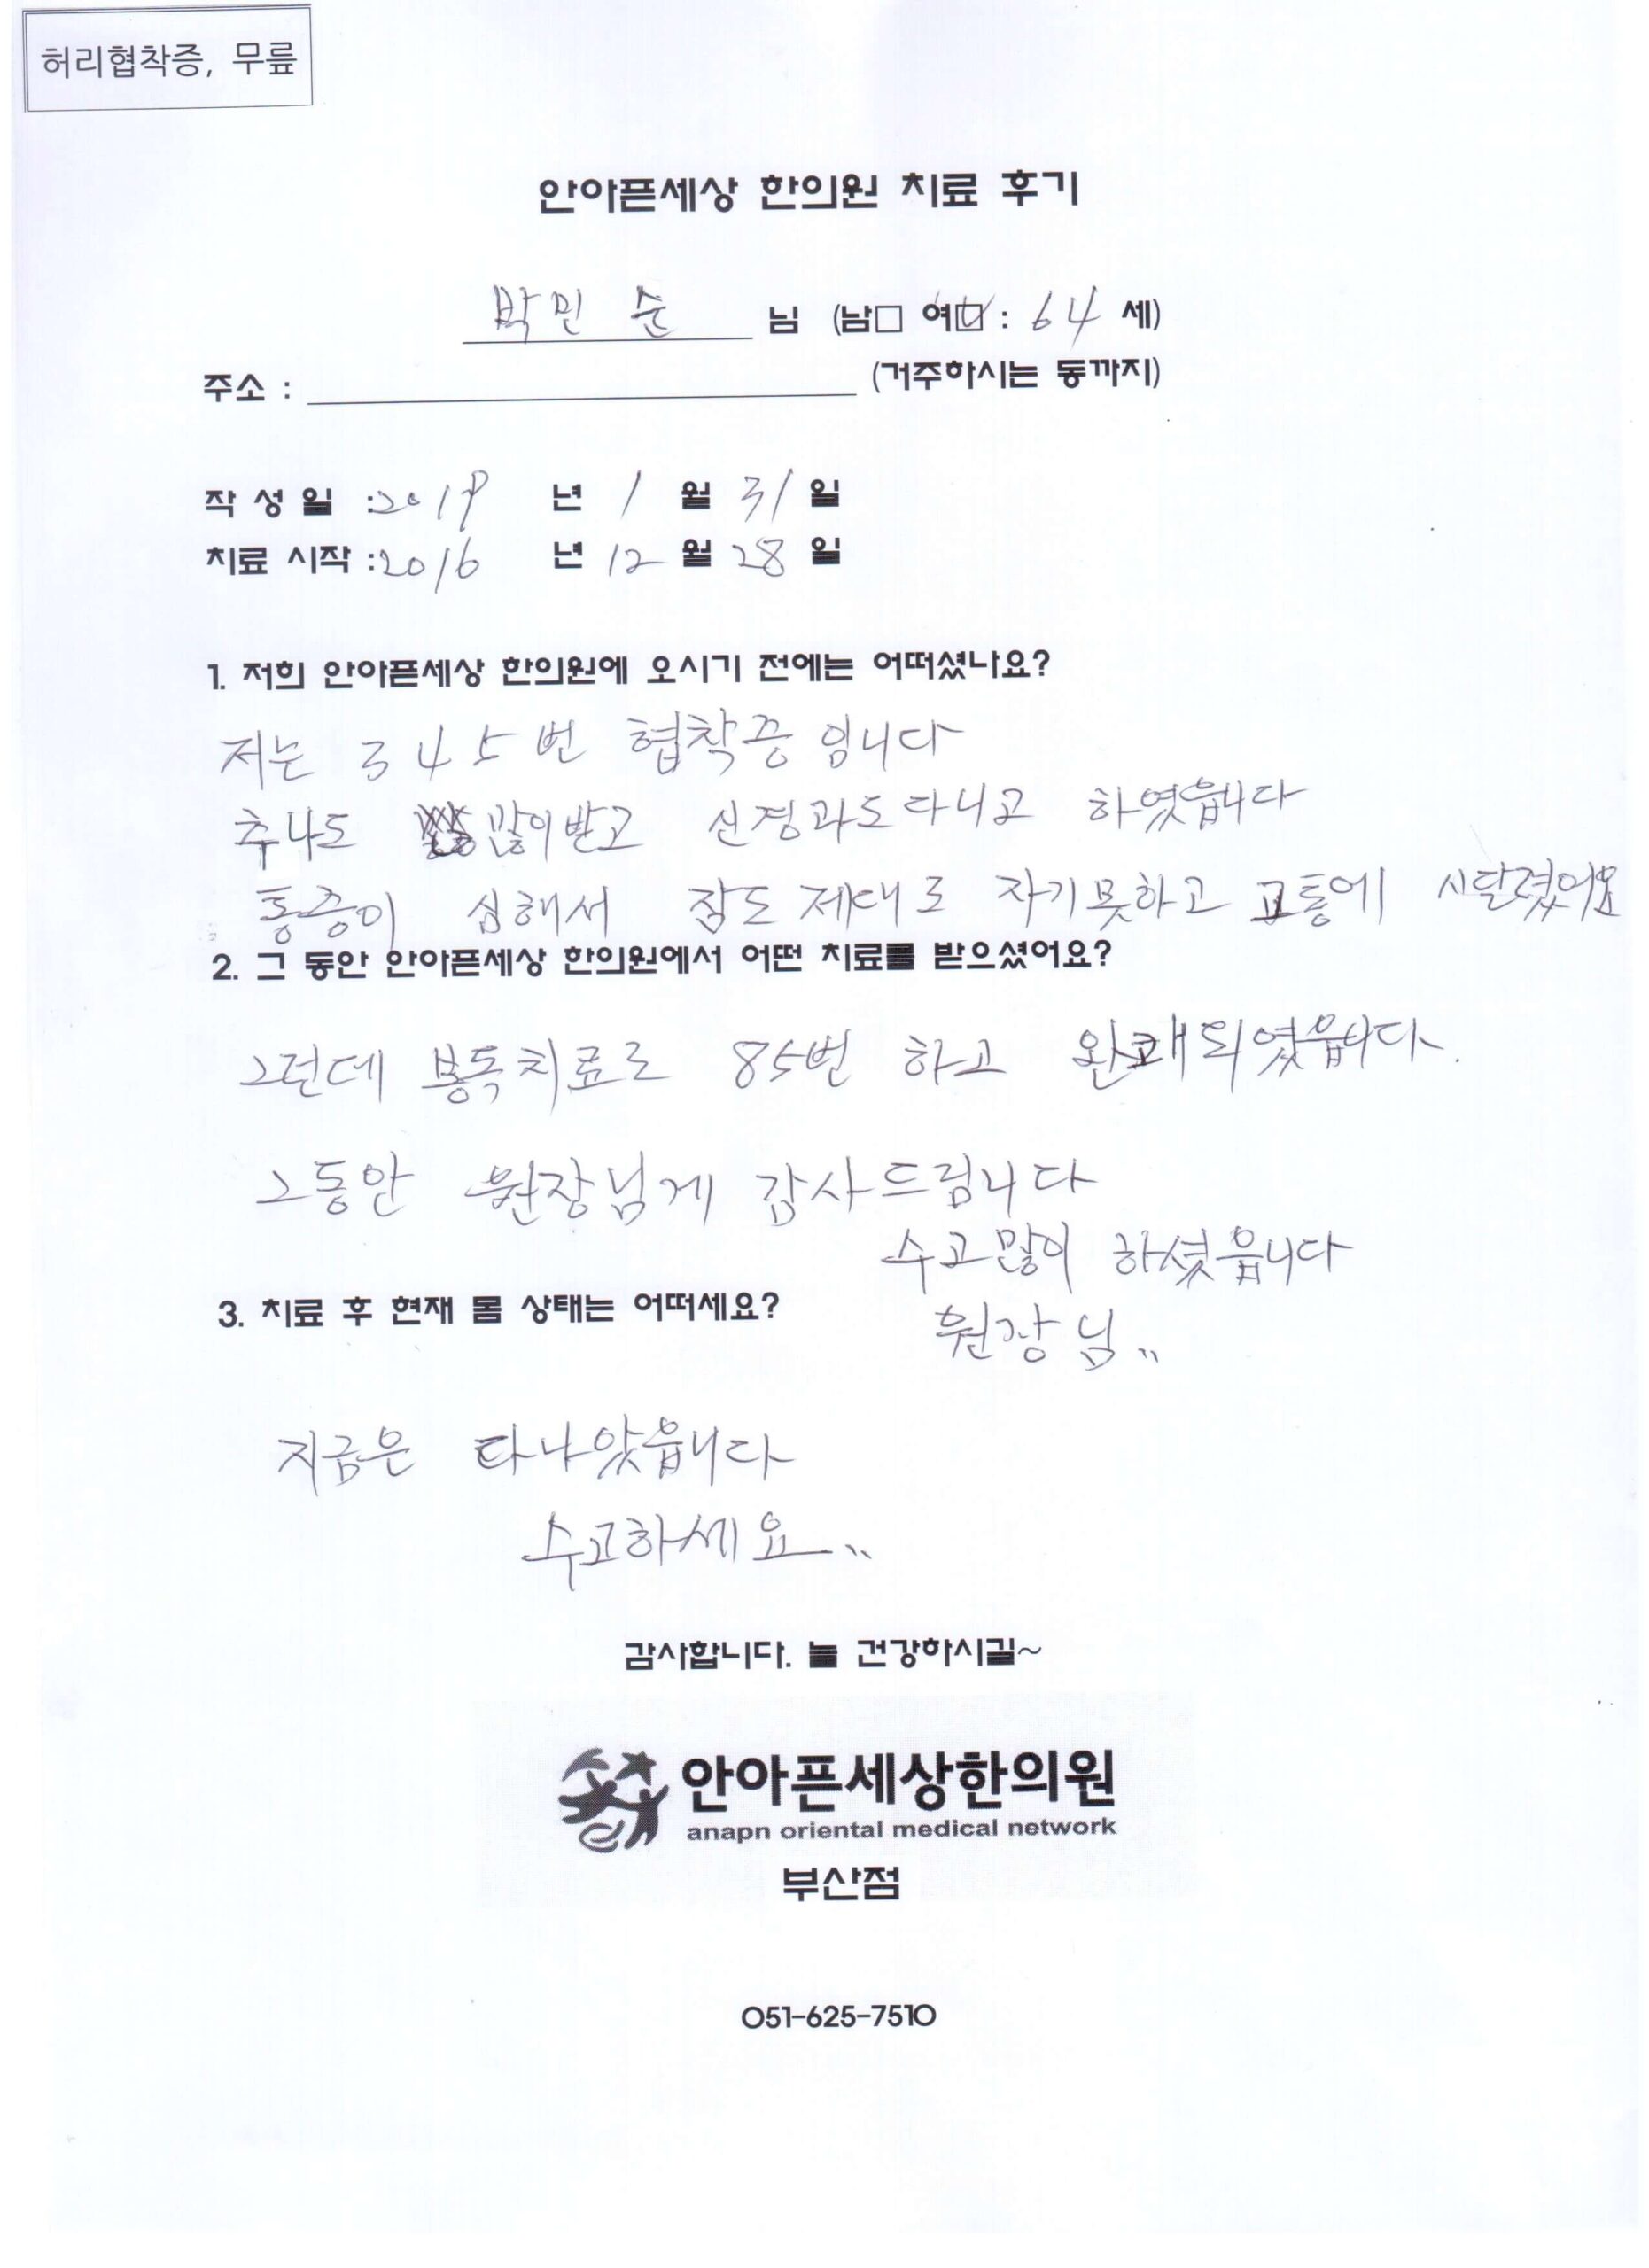 허리협착증, 무릎
안아픈세상 한의원 치료 후기
박민순 님 (남□ 여☑ : 64 세)
주소 : (거주하시는 동까지)
작 성 일 : 2019 년 1 월 31 일
치료 시작 : 2016 년 12 월 28 일
1. 저희 안아픈세상 한의원에 오시기 전에는 어떠셨나요?
저는 3 4 5 번 협착증 입니다
추나도 많이받고 신경과도다니고 하였읍니다
통증이 심해서 잠도 제대로 자기못하고 고통에 시달렸어요
2. 그 동안 안아픈세상 한의원에서 어떤 치료를 받으셨어요?
그런데 봉독치료로 85번 하고 완쾌되였읍니다.
그동안 원장님게 감사드림니다
수고많이 하셧읍니다
3. 치료 후 현재 몸 상태는 어떠세요?
원장님..
지금은 다나앗읍니다
수고하세요..
감사합니다. 늘 건강하시길~
안아픈세상한의원
anapn oriental medical network
부산점
051-625-7510